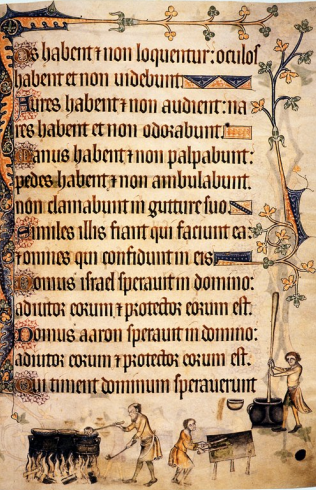 Os habent ⁊ non loquentur: oculos
habent et non uidebunt.
Aures habent ⁊ non audient: na
res habent et non odorabunt.
Manus habent ⁊ non palpabunt:
pedes habent ⁊ non ambulabunt.
non clamabunt in gutture suo.
Similes illis fiant qui faciunt ea:
⁊ omnes qui confidunt in eis.
Domus israel sperauit in domino:
adiutor eorum ⁊ protector eorum est.
Domus aaron sperauit in domino:
adiutor eorum ⁊ protector eorum est.
Qui timent dominum sperauerunt